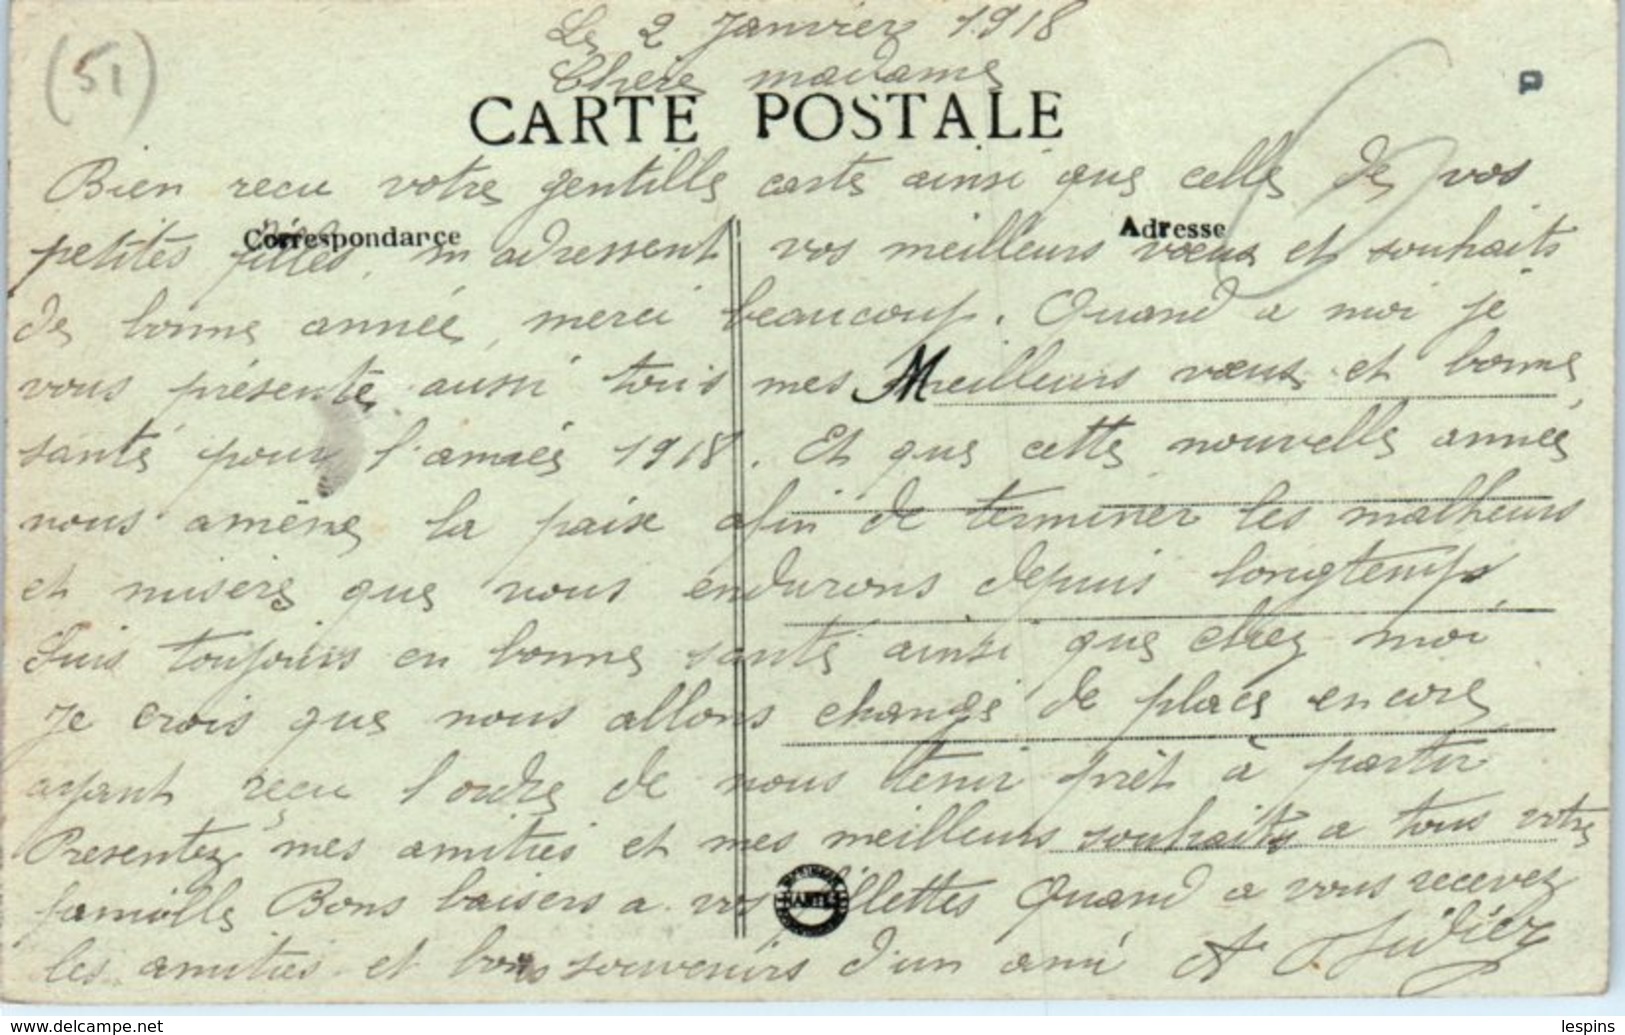 (51)
Le 2 Janvier 1918
Chère madame
CARTE POSTALE
Bien reçu votre gentille carte ainsi que celle de vos
Correspondance
Adresse
petites filles, m adressent vos meilleurs vœux et souhaits
de bonne année, merci beaucoup. Quand a moi je
vous présente aussi tous mes Meilleurs vœux et bonne
santé pour l'année 1918. Et que cette nouvelle année
nous amène la paix afin de terminer les malheurs
et misère que nous endurons depuis longtemps,
Suis toujours en bonne santé ainsi que chez moi
Je crois que nous allons changé de place encore
ayant reçu l ordre de nous tenir prêt à partir
Presentez mes amitiés et mes meilleurs souhaits a tous votre
famille Bons baisers a vos fillettes Quand a vous recevez
NANTES
les amitiés et bons souvenirs d'un ami A Didier
www.delcampe.net
lespins